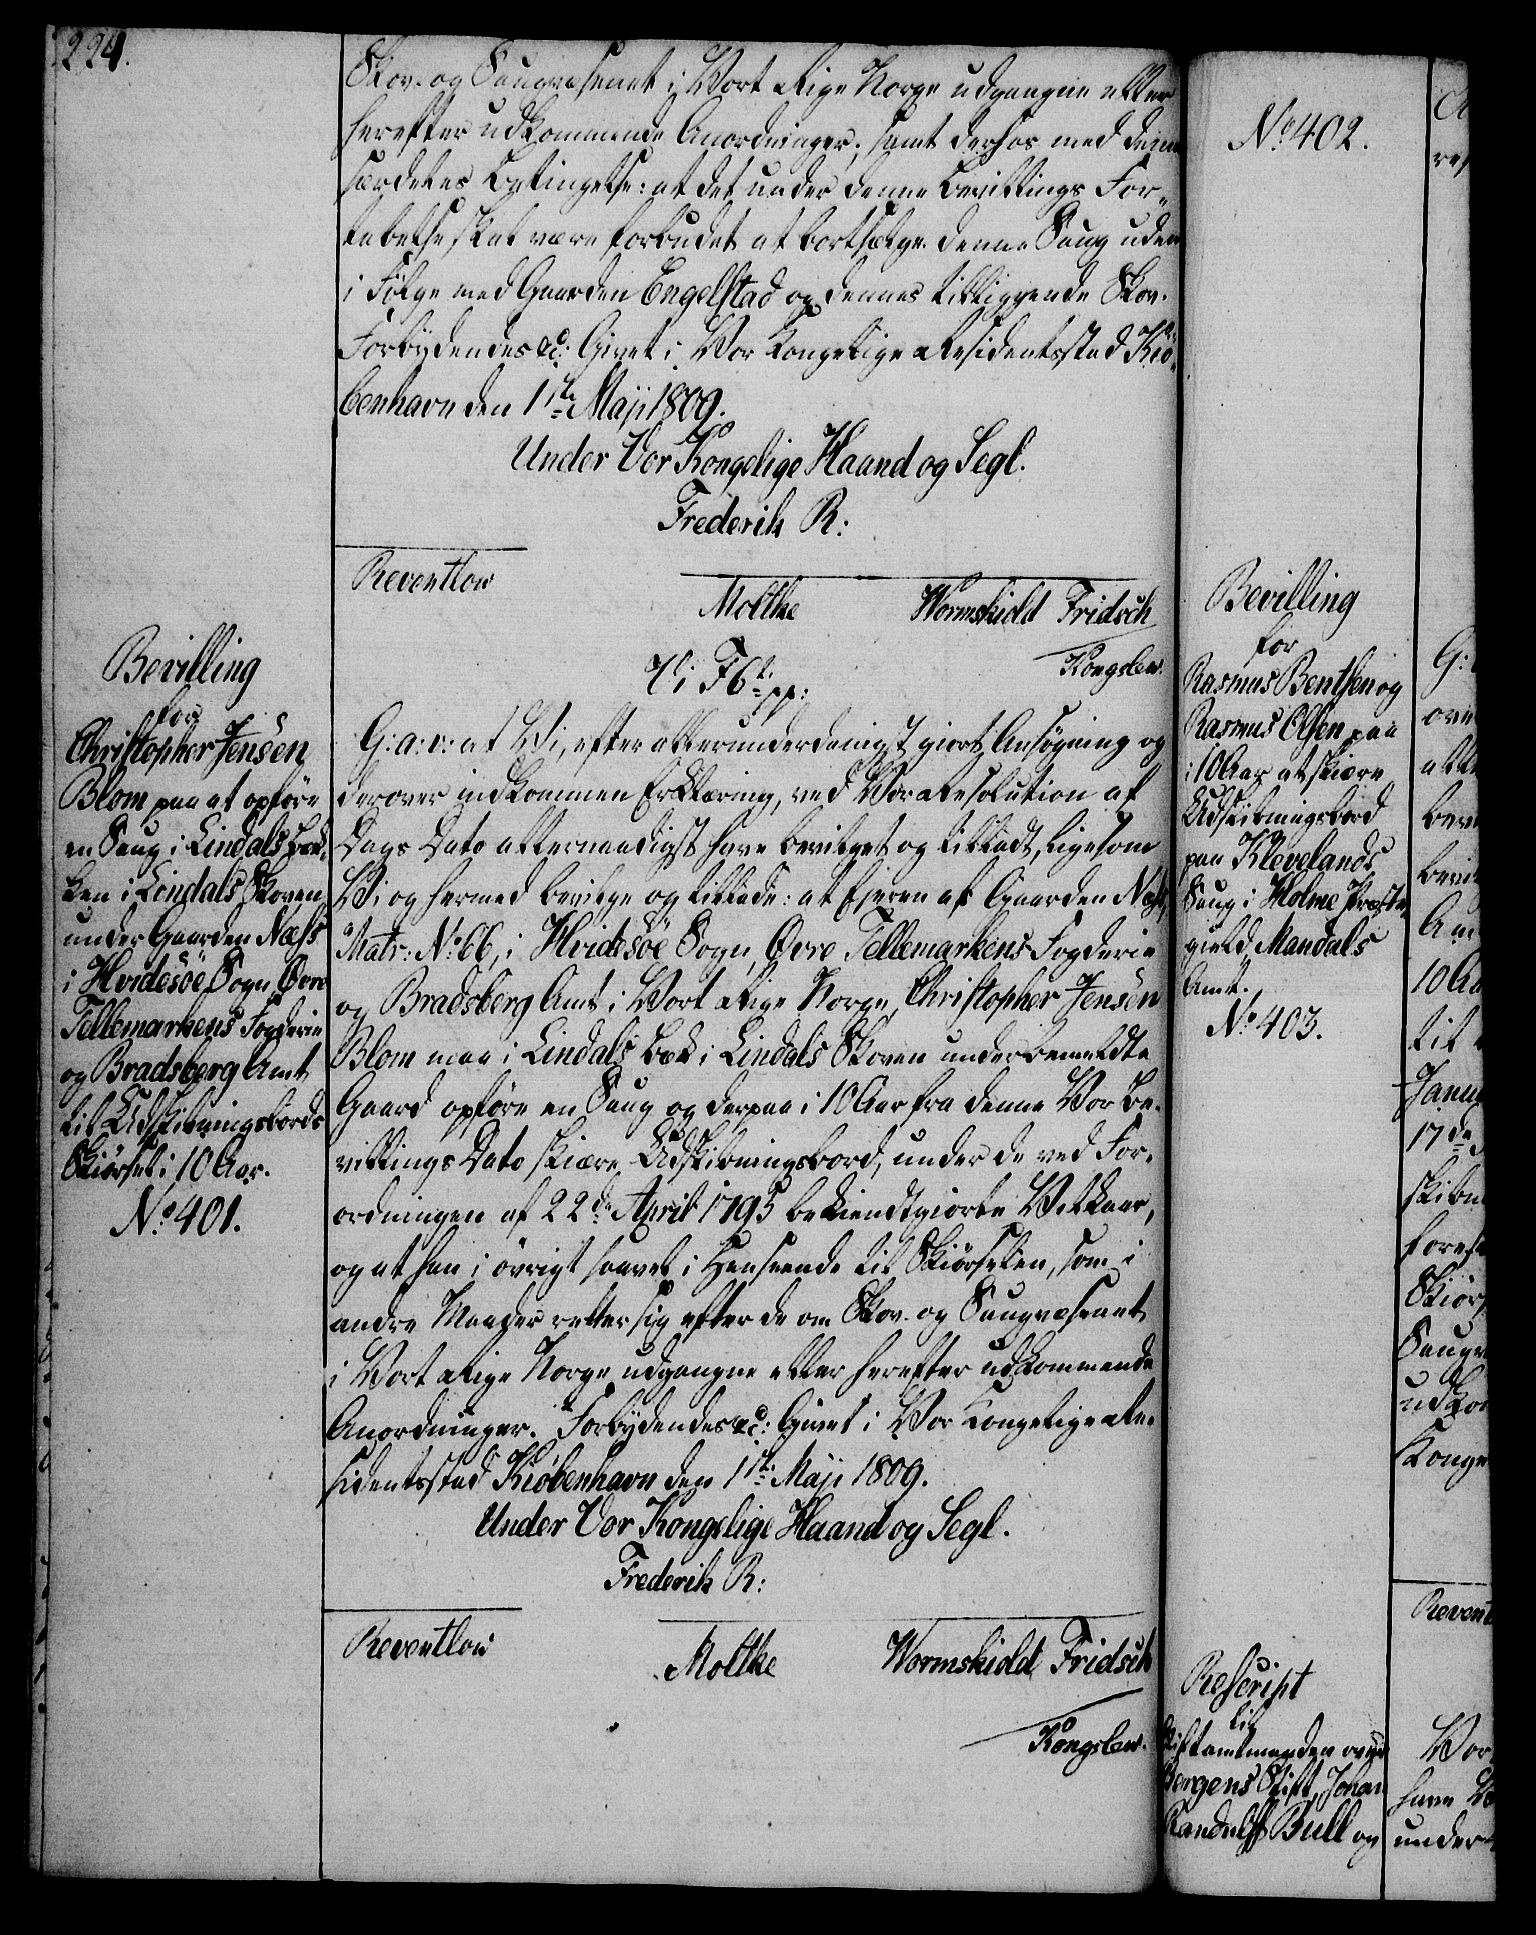 224.
Skov- og Saugvæsenet i Vort Rige Norge udgangne eller
herefter udkommende Anordninger; samt derhos med den
særdeles Betingelse: at det under denne Bevillings For-
tabelse skal være forbudet at bortsælge denne Saug uden
i Følge med Gaarden Engelstad og dennes tilliggende Skov.
Forbydendes &c: Givet i Vor Kongelige Residentsstad Kiö-
benhavn den 1ste Maji 1809.
Under Vor Kongelige Haand og Segl.
Frederik R:
Reventlow
Moltke Wormskiold Fridsch
Kongslew.
Bevilling
for
Christopher Jensen
Blom paa at opføre
en Saug i Lindals Bæk-
ken i Lindals Skoven
under Gaarden Næss
i Hvidesöe Sogn, Øvre
Tellemarkens Fogderie
og Bradsberg Amt
til Udskibningsbords
Skiørsel i 10 Aar.
No 401.
Vi F6t. pp:
G: a: v: at Vi, efter allerunderdanigst giort Ansøgning og
derover indkommen Erklæring, ved Vor Resolution af
Dags Dato allernaadigst have bevilget og tilladt, ligesom
Vi og hermed bevilge og tillade: at Eieren af Gaarden Næss,
Matr: No 66, i Hvidesöe Sogn, Øvre Tellemarkens Fogderie
og Bradsberg Amt i Vort Rige Norge, Christopher Jensen
Blom maa i Lindals Bæk i Lindals Skoven under bemeldte
Gaard opføre en Saug og derpaa i 10 Aar fra denne Vor Be-
villings Dato skiære Udskibningsbord, under de ved For-
ordningen af 22de April 1795 bekiendtgiorte Vilkaar,
og at han i øvrigt saavel i Henseende til Skiørselen, som i
andre Maader retter sig efter de om Skov- og Saugvæsenet
i Vort Rige Norge udgangne eller herefter udkommende
Anordninger. Forbydendes &c: Givet i Vor Kongelige Re-
sidentsstad Kiöbenhavn den 1ste Maji 1809.
Under Vor Kongelige Haand og Segl.
Frederik R:
Reventlow
Moltke Wormskiold Fridsch
Kongslew.
No 402.
Bevilling
for
Rasmus Bentsen og
Rasmus Olsen paa
i 10 Aar at skiære
Udskibningsbord
paa Klevelands
Saug i Holme Præste-
gield, Mandals
Amt.
No 403.
Rescript
til
Stiftamtmanden over
Bergens Stift, Johan
Randulff Bull og
10 Aa
til
Janu
17de
skibn
Skiør
Saugv
udko
Konge
Revent
Vor
have V
under